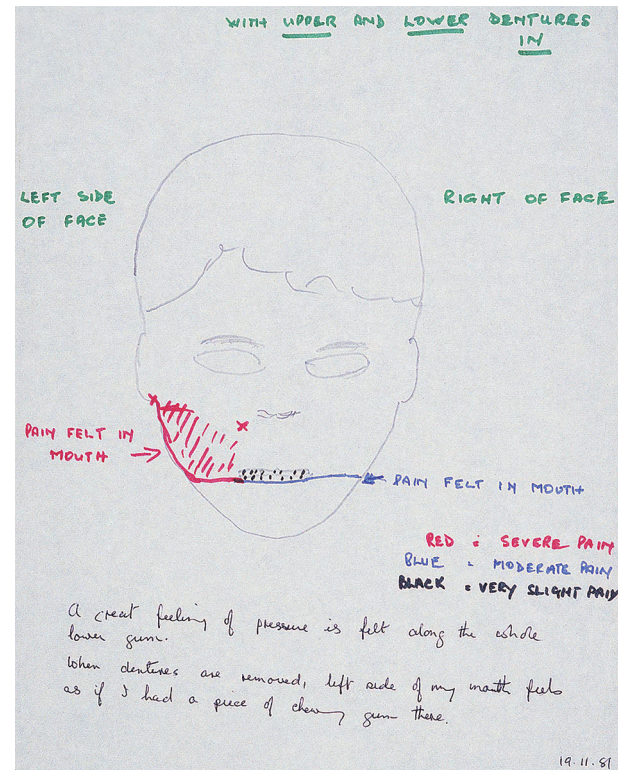 WITH UPPER AND LOWER DENTURES
IN
LEFT SIDE
OF FACE
RIGHT OF FACE
PAIN FELT IN
MOUTH
PAIN FELT IN MOUTH
RED : SEVERE PAIN
BLUE : MODERATE PAIN
BLACK : VERY SLIGHT PAIN
A great feeling of pressure is felt along the whole
lower gum.
When dentures are removed, left side of my mouth feels
as if I had a piece of chewy gum there.
19.11.81